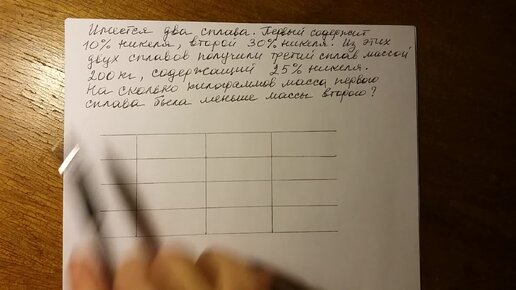 Имеется два сплава. Первый содержит
10% никеля, второй 30% никеля. Из этих
двух сплавов получили третий сплав массой
200 кг, содержащий 25% никеля.
На сколько килограммов масса первого
сплава была меньше массы второго?